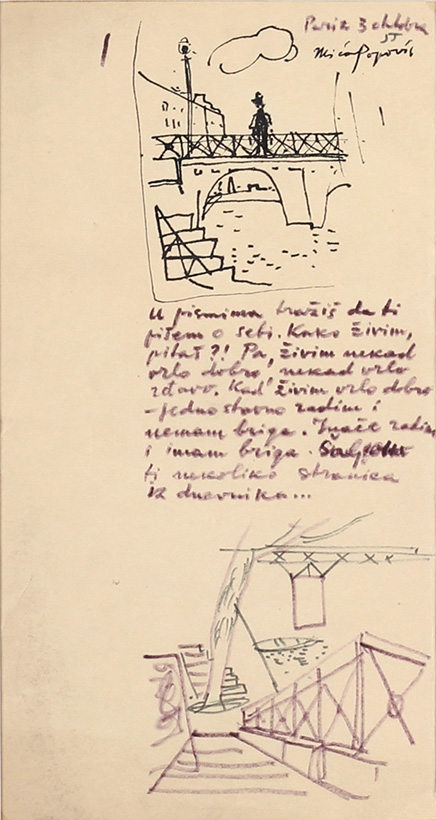 1
Pariz 3 oktobra
55
Mića Popović
U pismima tražiš da ti
pišem o sebi. Kako živim,
pitaš?! Pa, živim nekad
vrlo dobro, nekad vrlo
rđavo. Kad živim vrlo dobro
- jednostavno radim i
nemam briga. Inače radim
i imam briga. Šaljem
ti nekoliko stranica
iz dnevnika...